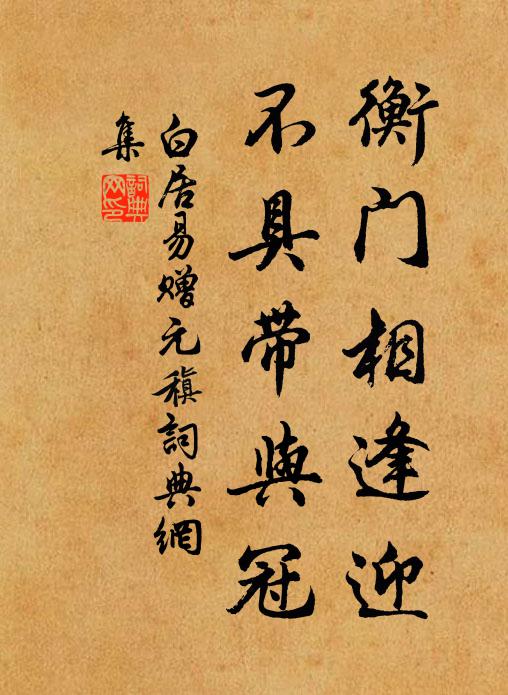 衡门相逢迎
不具带與冠
白居易赠元稹詞典網
集
詞典网印